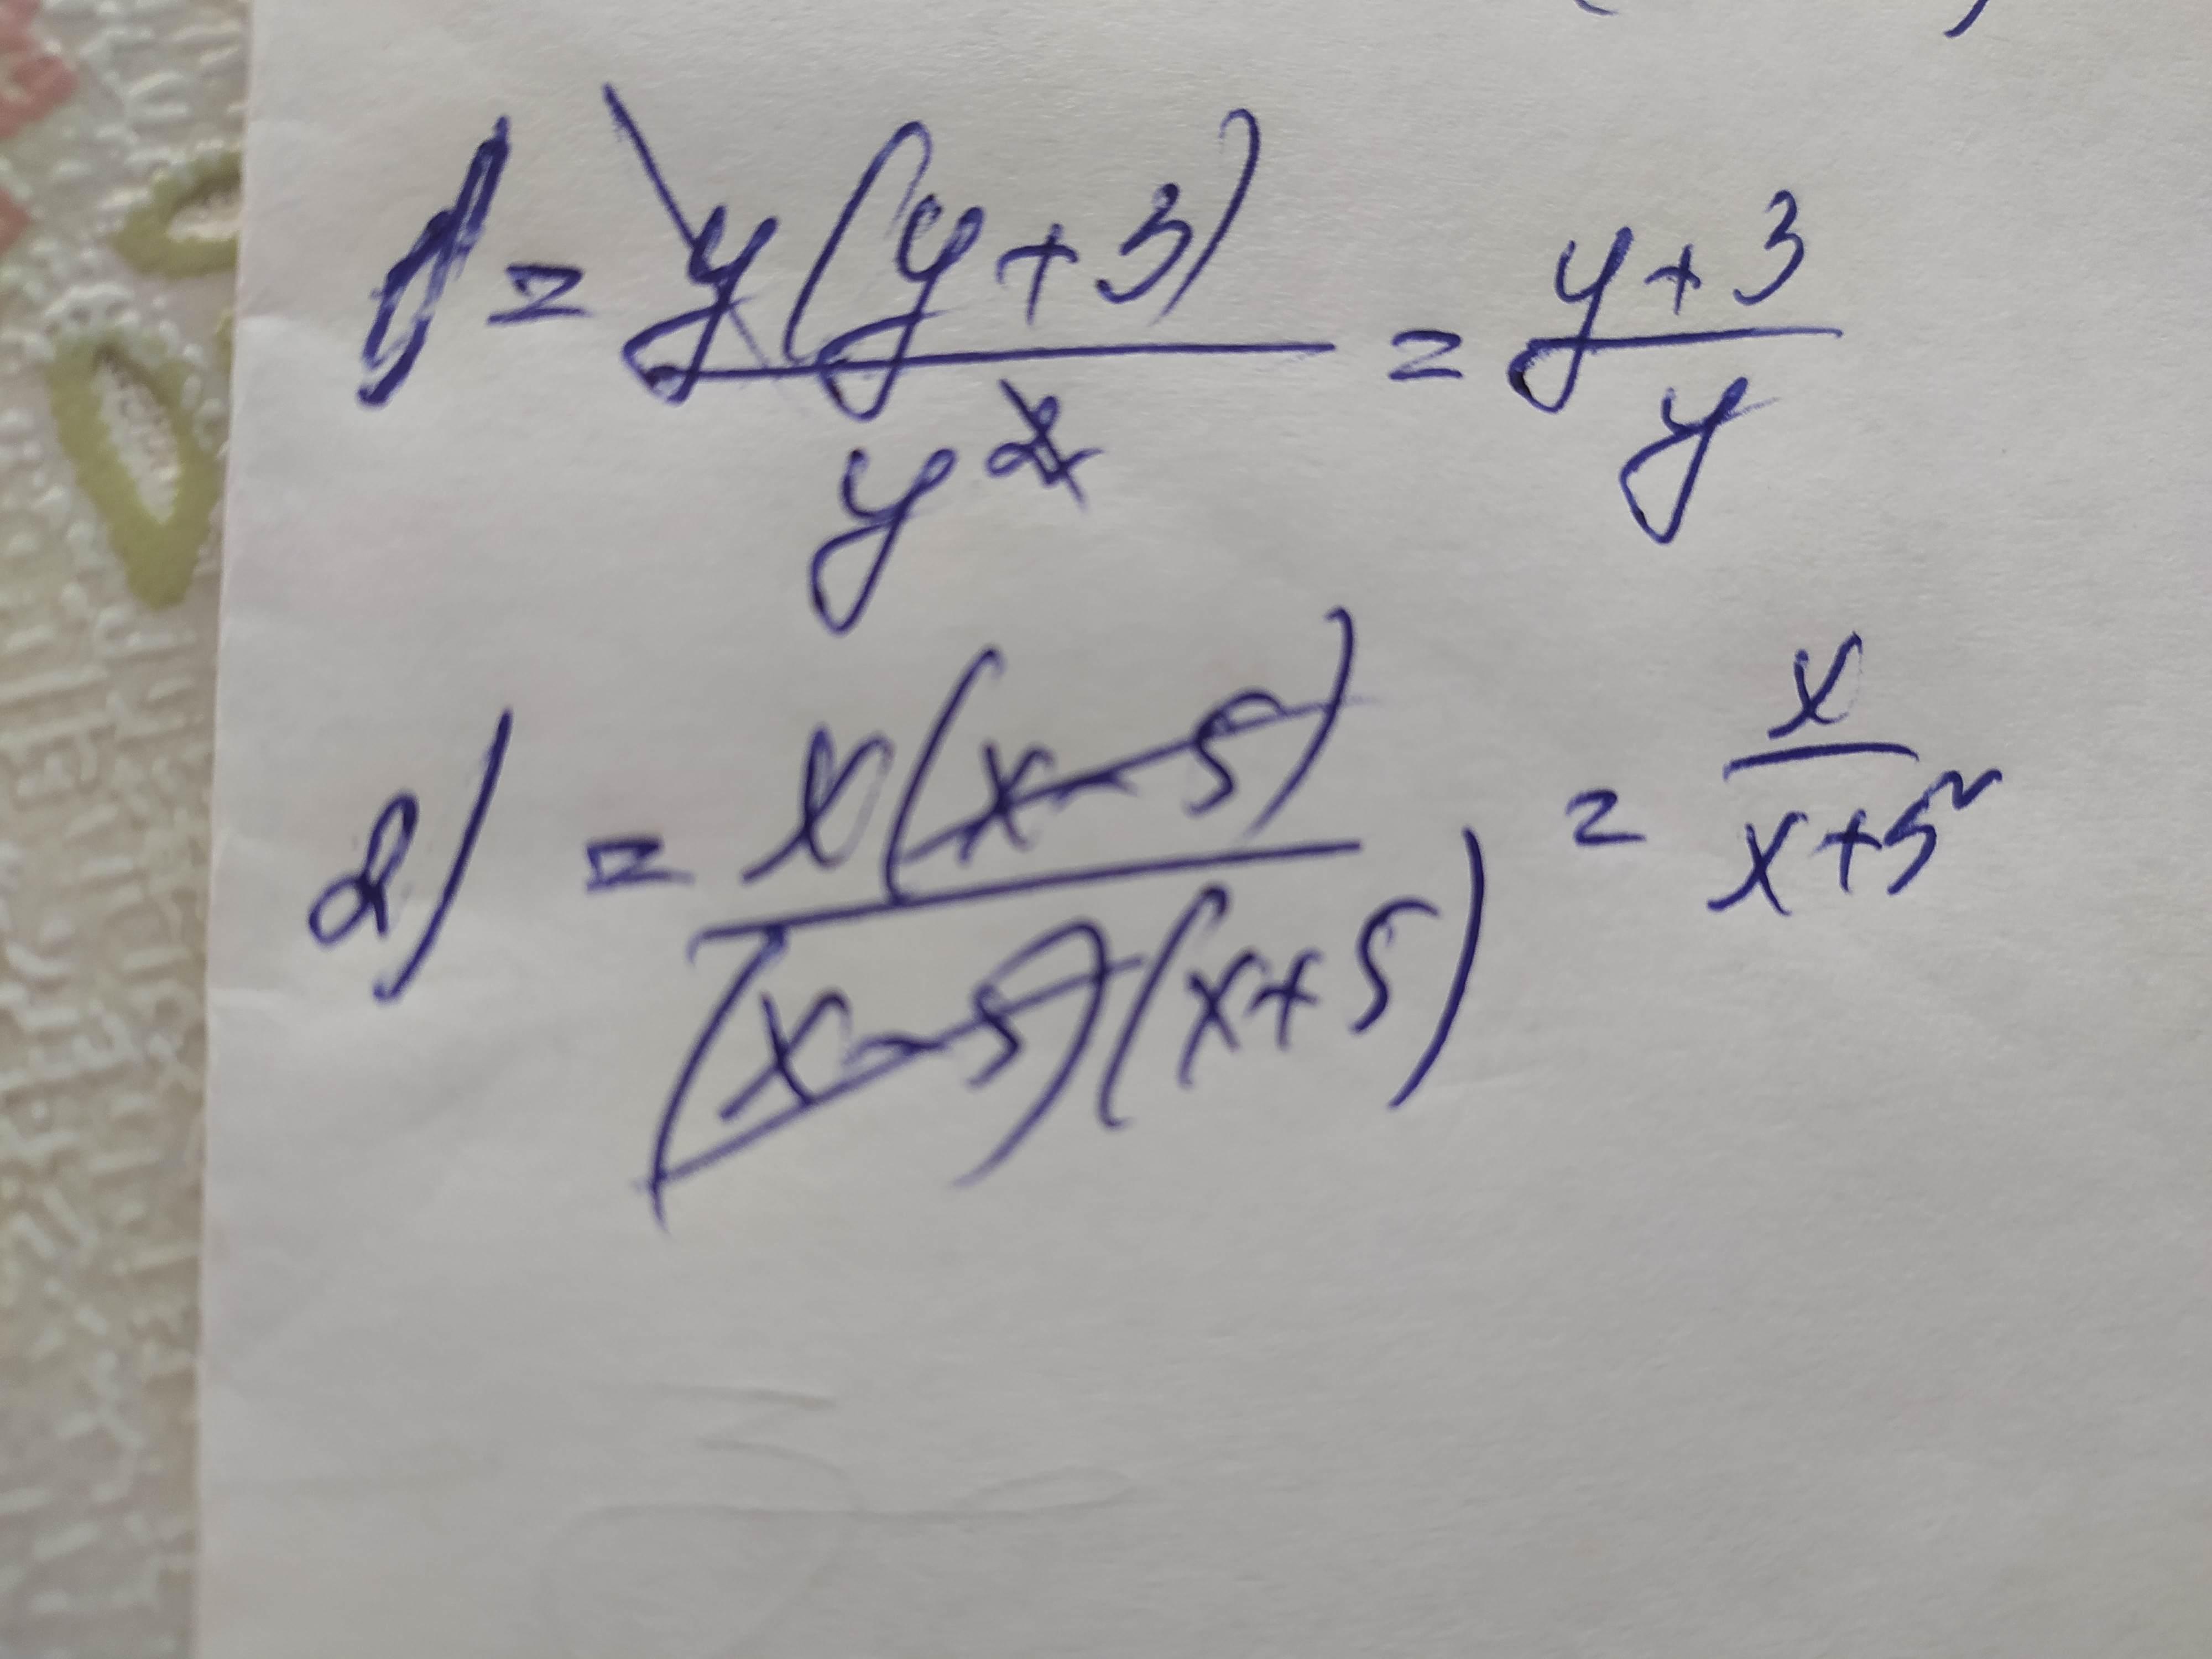 1) = y(y+3) / y² = y+3 / y
2) = x(x-5) / (x-5)(x+5) = x / x+5